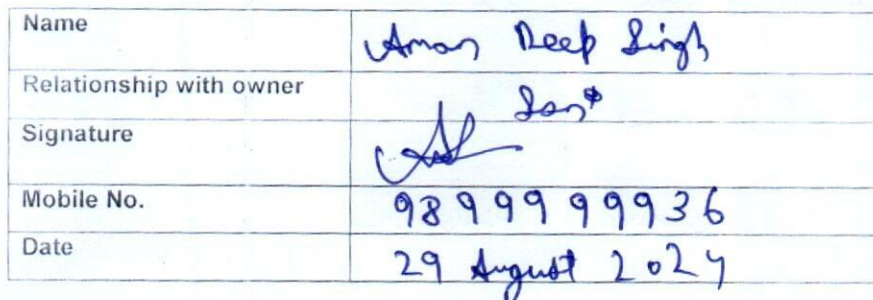 Name Aman Deep Singh
Relationship with owner Son
Signature
Mobile No. 98 9 9 9 9 9 9 3 6
Date 29 August 2024